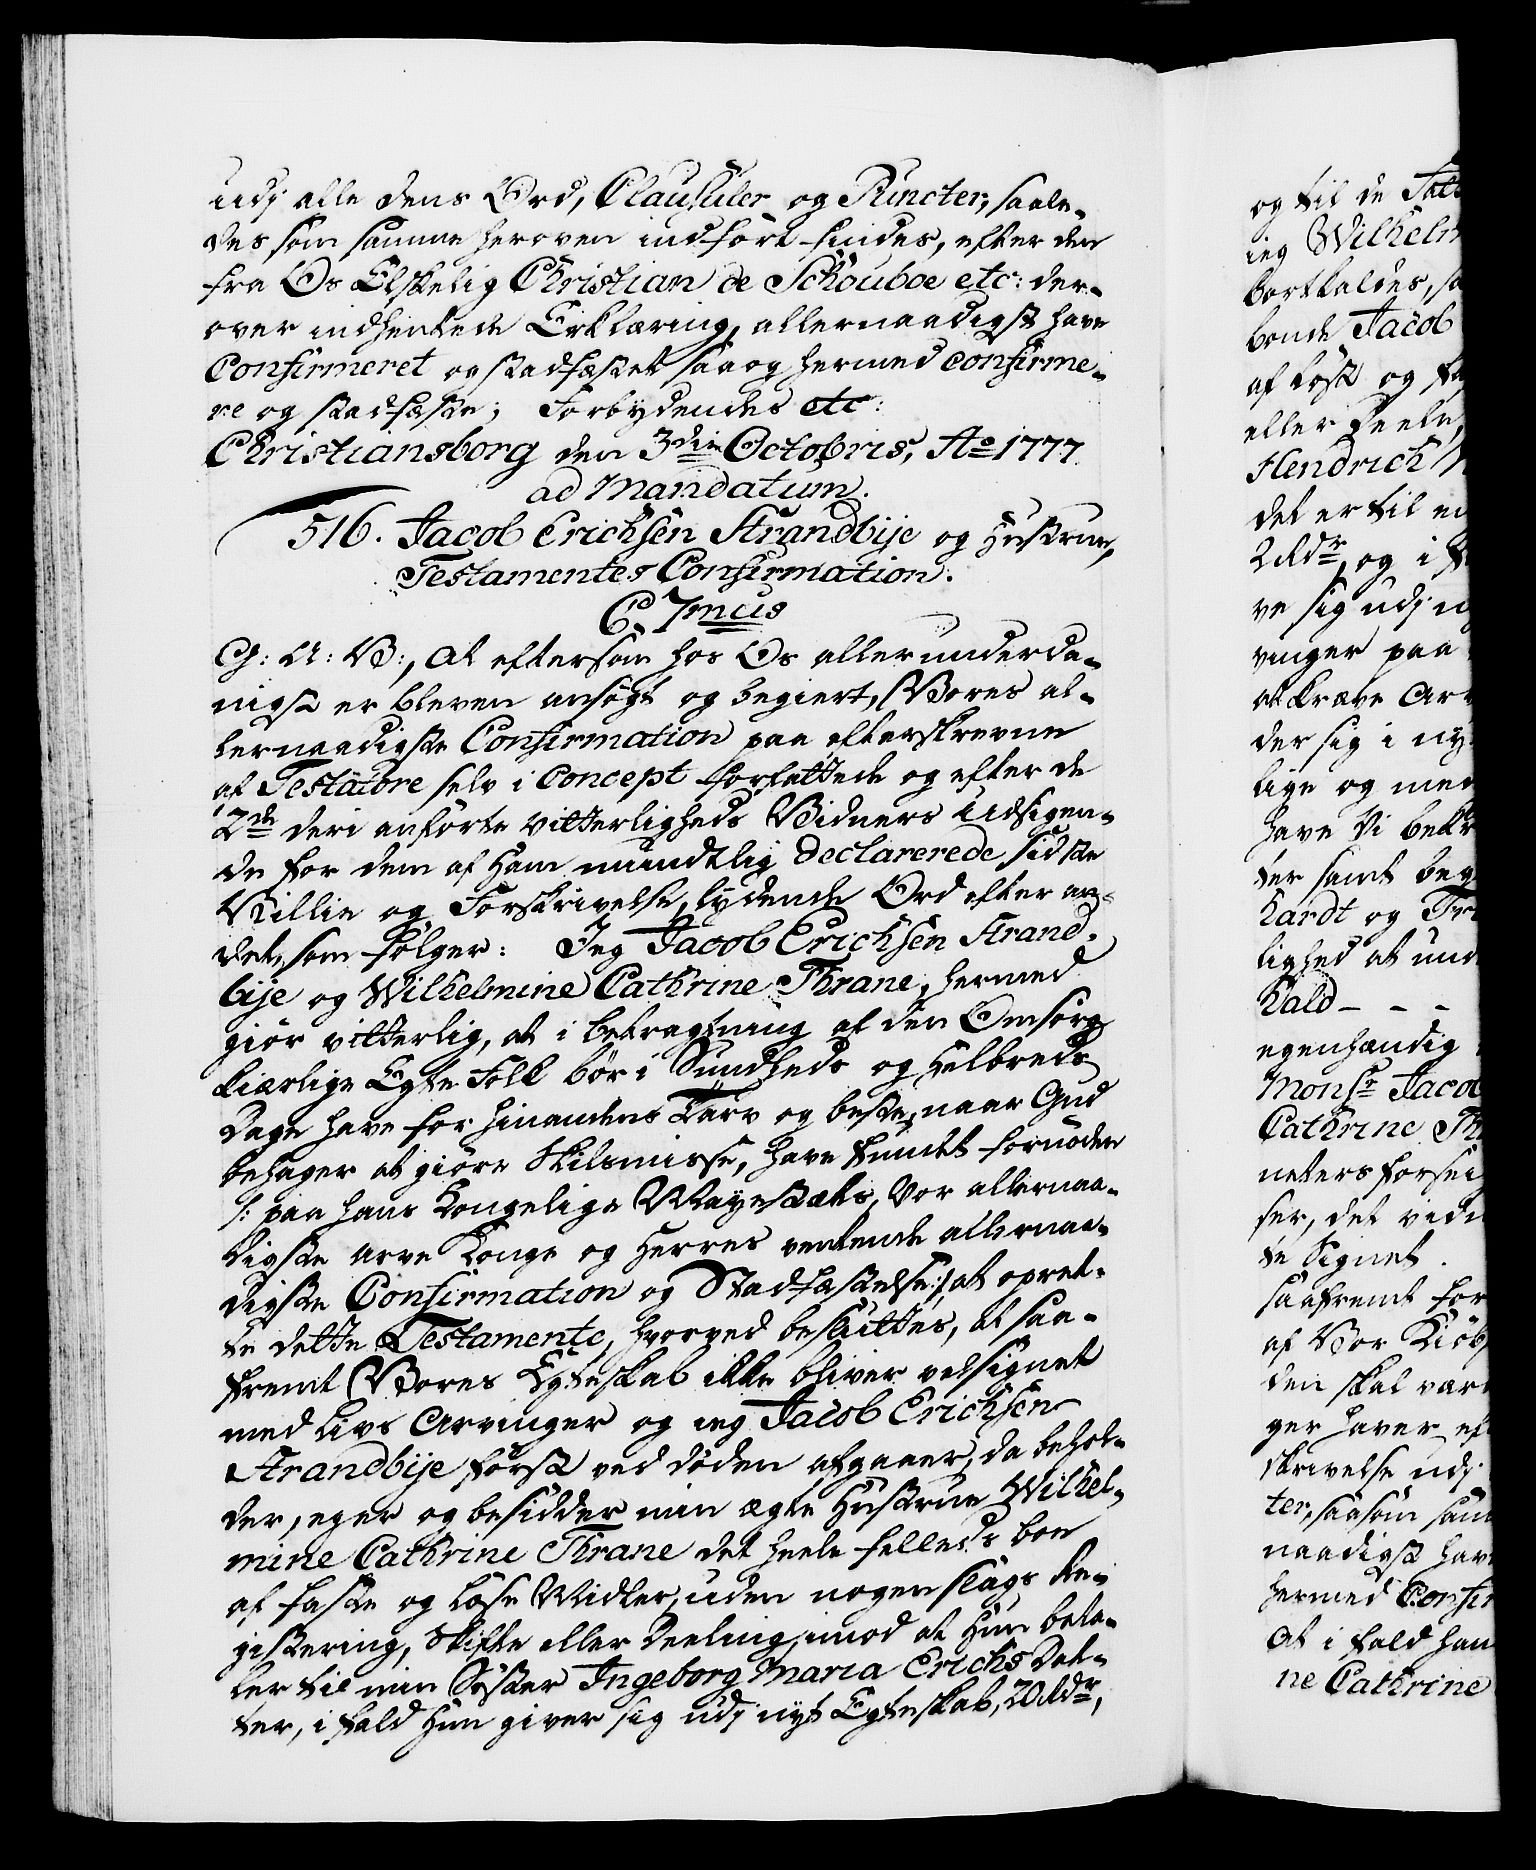 udj alle dens Ord, Clausuler og Puncter, saale-
des som samme heroven indført findes, efter den
fra Os Elskelig Christian de Schouboe etc: der-
over indhentede Erklæring, allernaadigst have
Confirmeret og stadfæstet saa og hermed confirme-
re og stadfæste; Forbydendes etc:
Christiansborg den 3die Octobris, Ao 1777.
ad Mandatum.
516. Jacob Erichsen Strandbije og Hustrues,
Testamentes Confirmation.
C. 7mus
G: A: V:, at eftersom hos Os allerunderda-
nigst er bleven ansøgt og begiert, Vores al-
lernaadigste Confirmation paa efterskrevne
af Testatore selv i Concept forfattede og efter de
2de deri anførte vitterligheds Vidners Udsigen-
de for dem af Ham mundtlig declarerede sidste
Villie og Forskrivelse, lydende Ord efter an-
det, som følger: Jeg Jacob Erichsen Strand-
bije og Wilhelmine Cathrine Thrane, hermed
giør vitterlig, at i betragtning af den Omsorg
kiærlige Egte Folk bør i Sundheds og Helbreds
Dage have for hinandens Tarv og beste, naar Gud
behager at giøre Skilsmisse, have fundet fornøden
/: paa hans Kongelige Mayestæts, Vor allernaa-
digste Arve Konge og Herres ventende allernaa-
digste Confirmation og Stadfæstelse :/ at opret-
te dette Testamente, hvorved besluttes, at saa-
fremt Vores Egteskab ikke bliver velsignet
med Livs Arvinger og jeg Jacob Erichsen
Strandbije først ved døden afgaaer, da behol-
der, eger og besidder min ægte Hustrue Wilhel-
mine Cathrine Thrane det heele fælleds boe
af faste og løse Midler, uden nogen slags Re-
gistering, Skifte eller Deeling, imod at Hun beta-
ler til min Søster Ingeborg Maria Erichs Dat-
ter, i fald Hun giver sig udj nyt Egteskab, 20 Rdr,
og til de
ieg Wilhelm
bortkaldes, sa
bonde Jacob
af løst og fa
eller Deele,
Hendrich
det er til
2 Rdr, og i
ve sig udj
vinger paa
at kræve Ar
der sig i ny
lige og med
have Vi bekr
ter samt beg
Kardt og
lighed at und
Kald - - -
egenhændig
Monsr Jacob
Cathrine Th
neters forsei
ser, det vidn
te Signet.
saafremt for
af Vor Kiøb
den skal vær
ger haver ef
skrivelse udj
ter, saasom sam
naadigst hav
hermed Confir
At i fald han
ne Cathrine